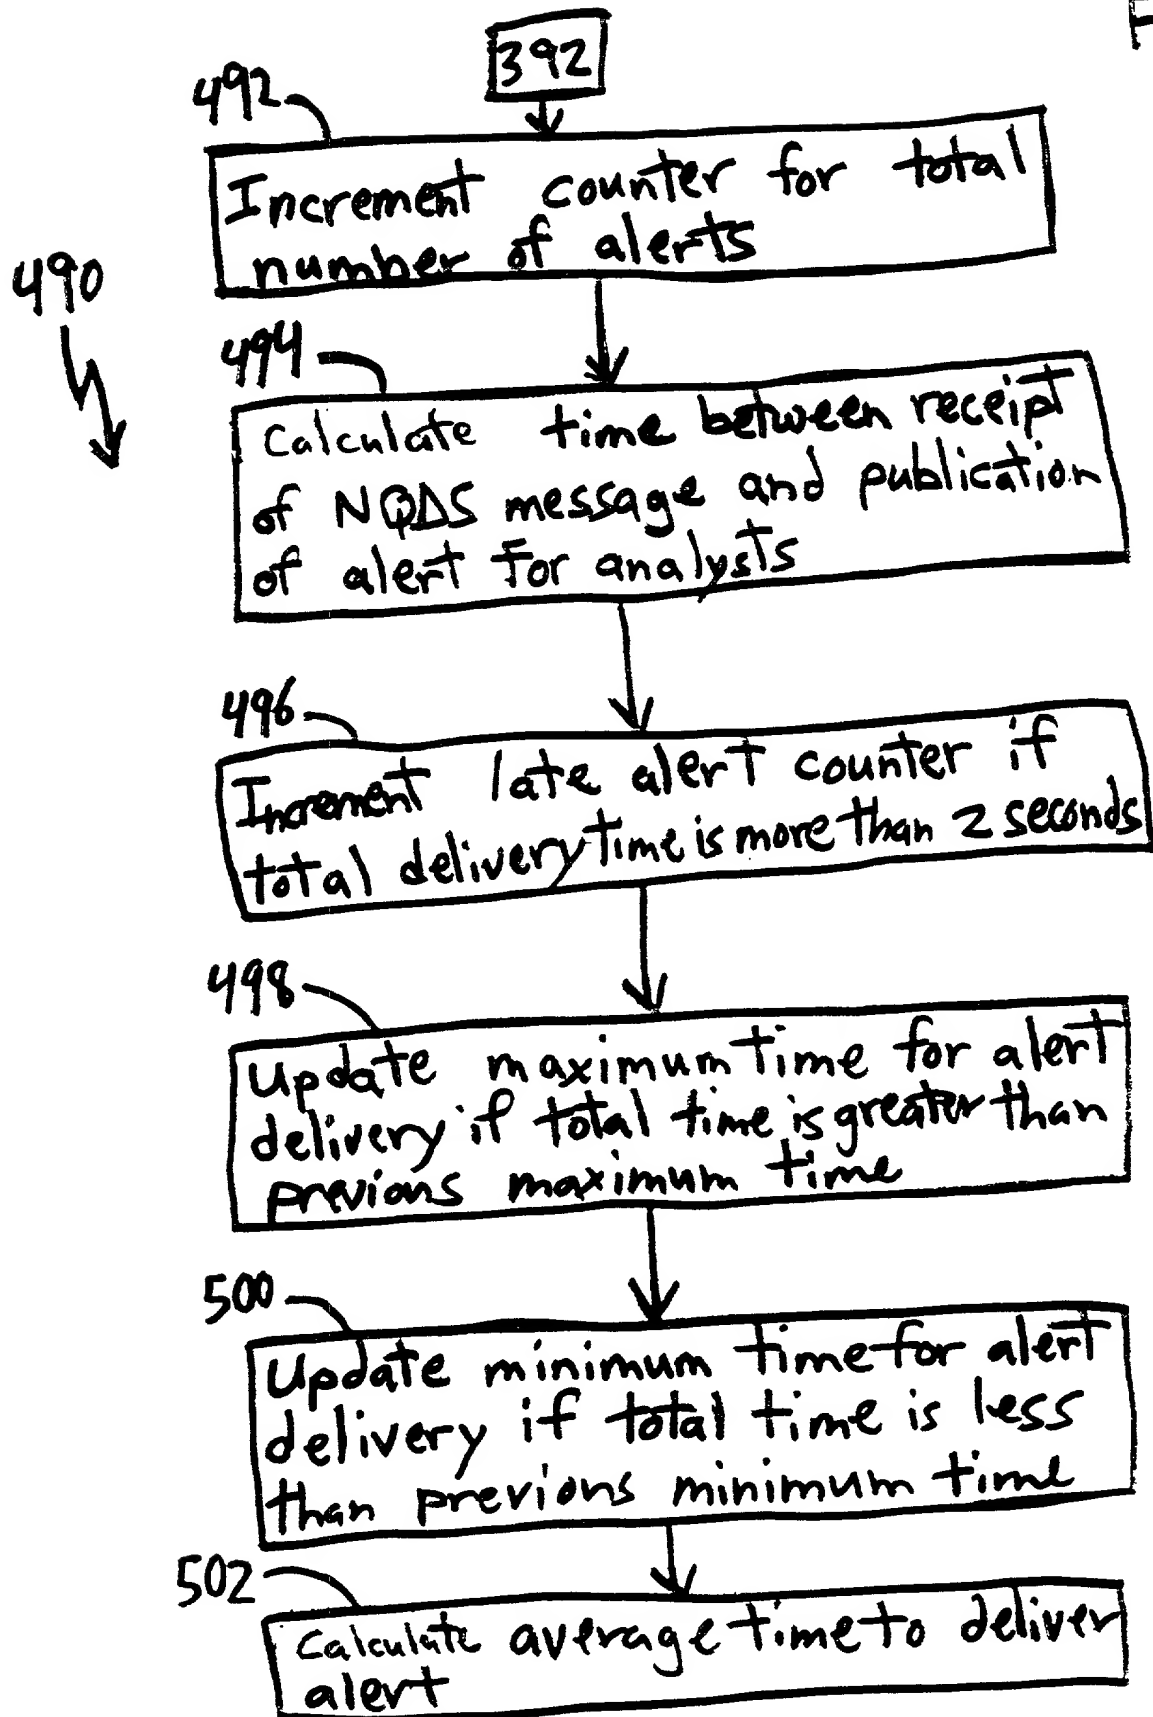 392
492
Increment counter for total
number of alerts
490
494
Calculate time between receipt
of NQDS message and publication
of alert for analysts
496
Increment late alert counter if
total delivery time is more than 2 seconds
498
Update maximum time for alert
delivery if total time is greater than
previous maximum time
500
Update minimum time for alert
delivery if total time is less
than previous minimum time
502
Calculate average time to deliver
alert